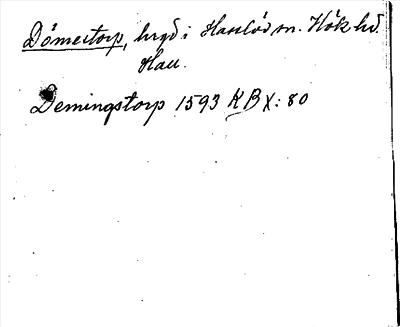 Dömestorp, bryd i Hasslöv sn. Hök hd.
Hall.
Demingstorp 1593 KB X: 80